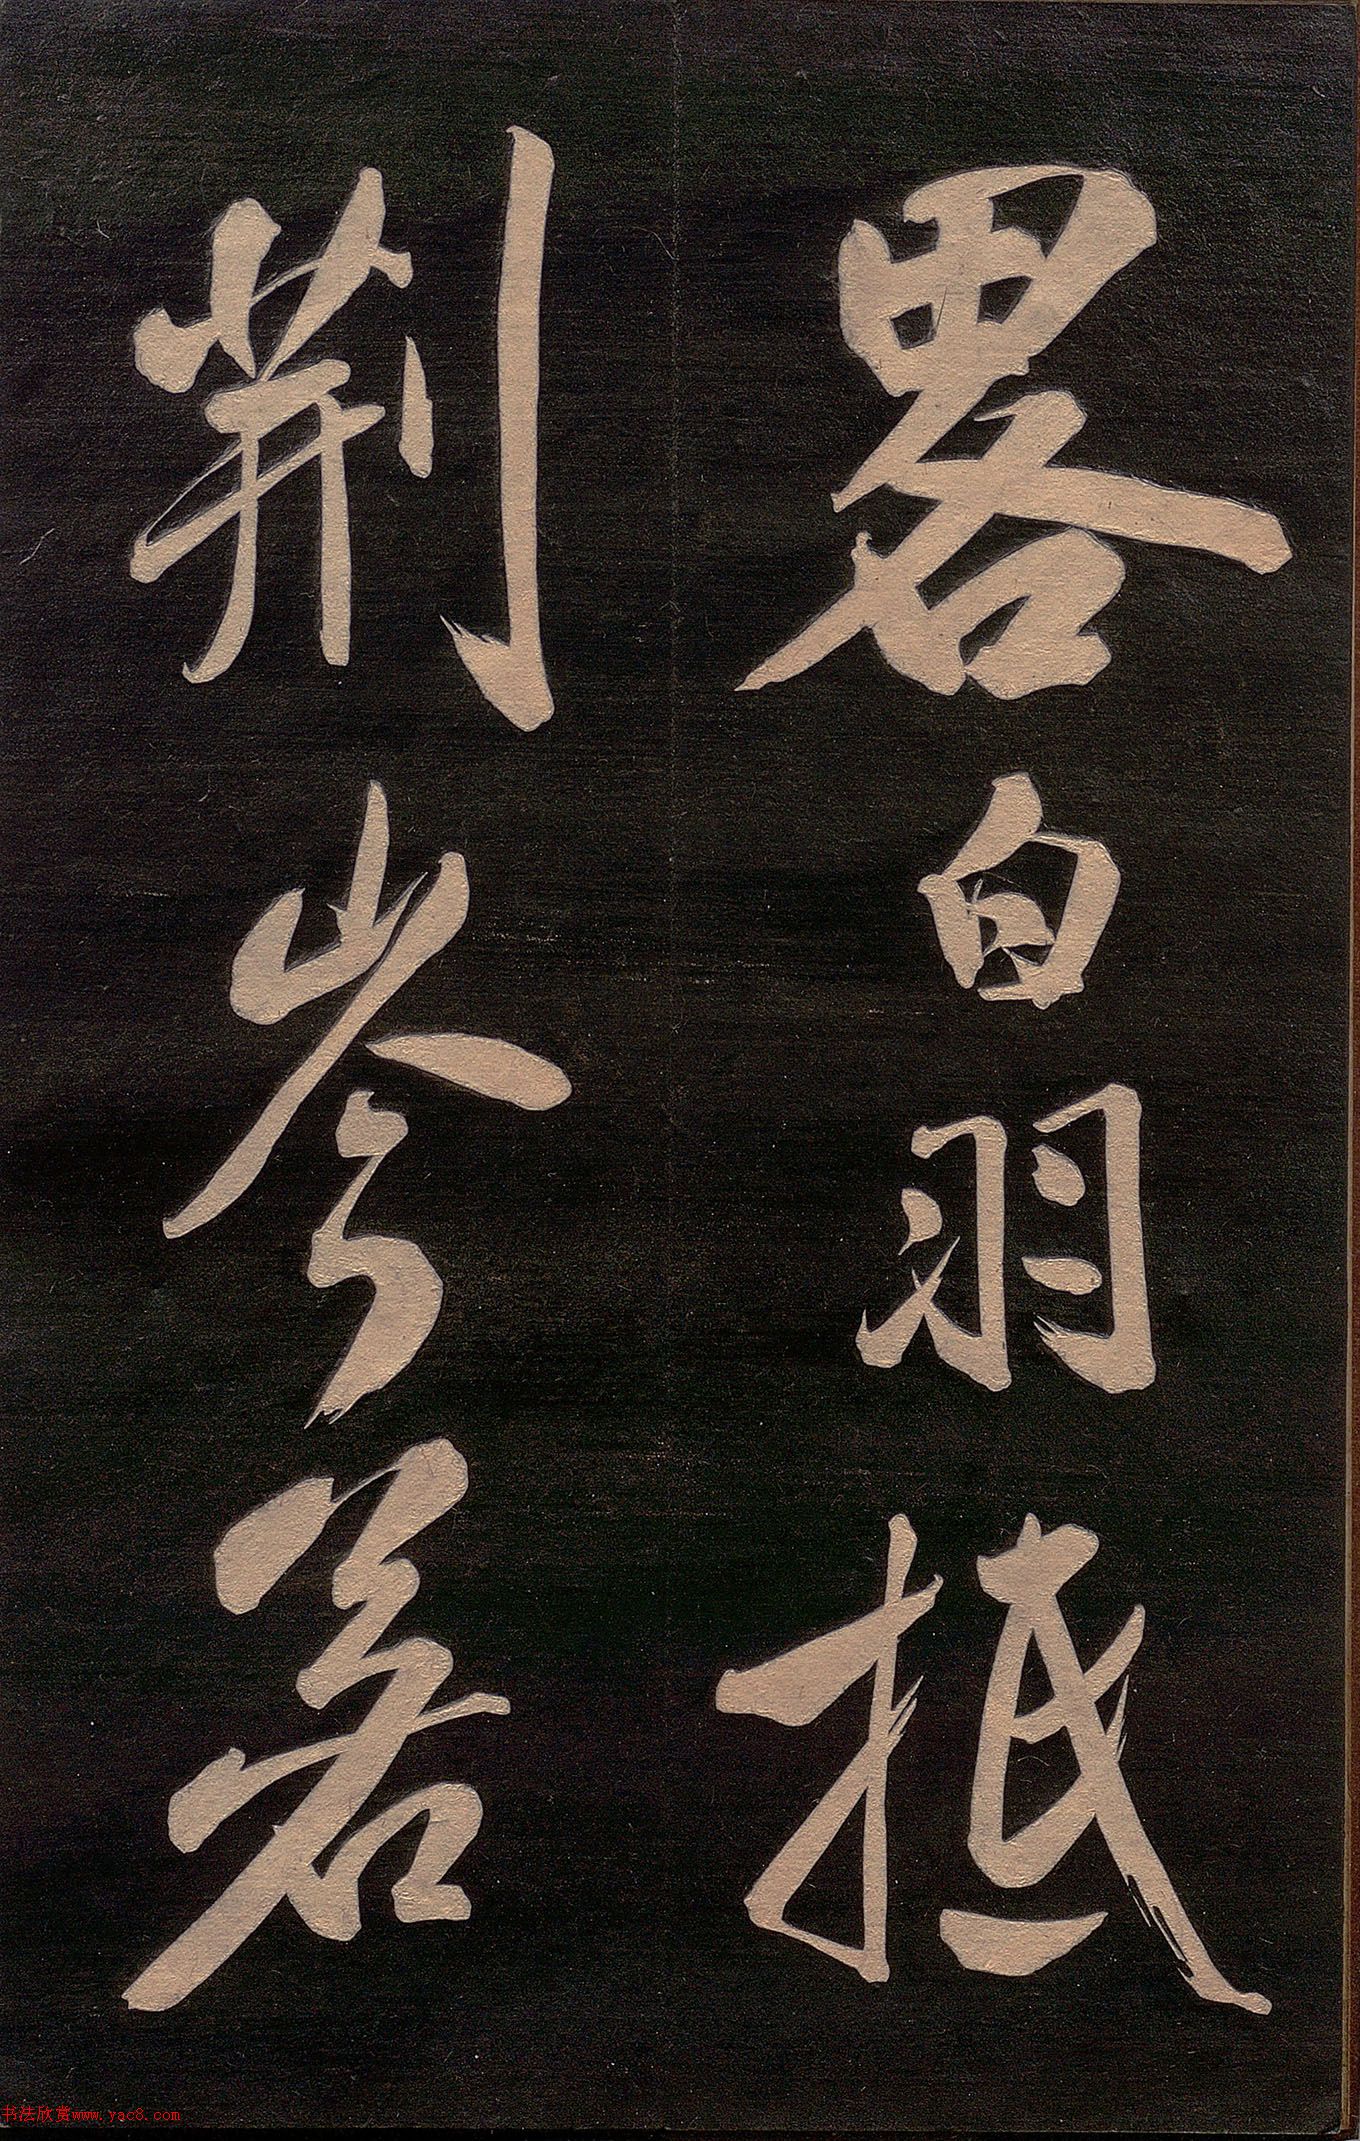 畧白羽抵
荆岑若
书法欣赏www.yac8.com